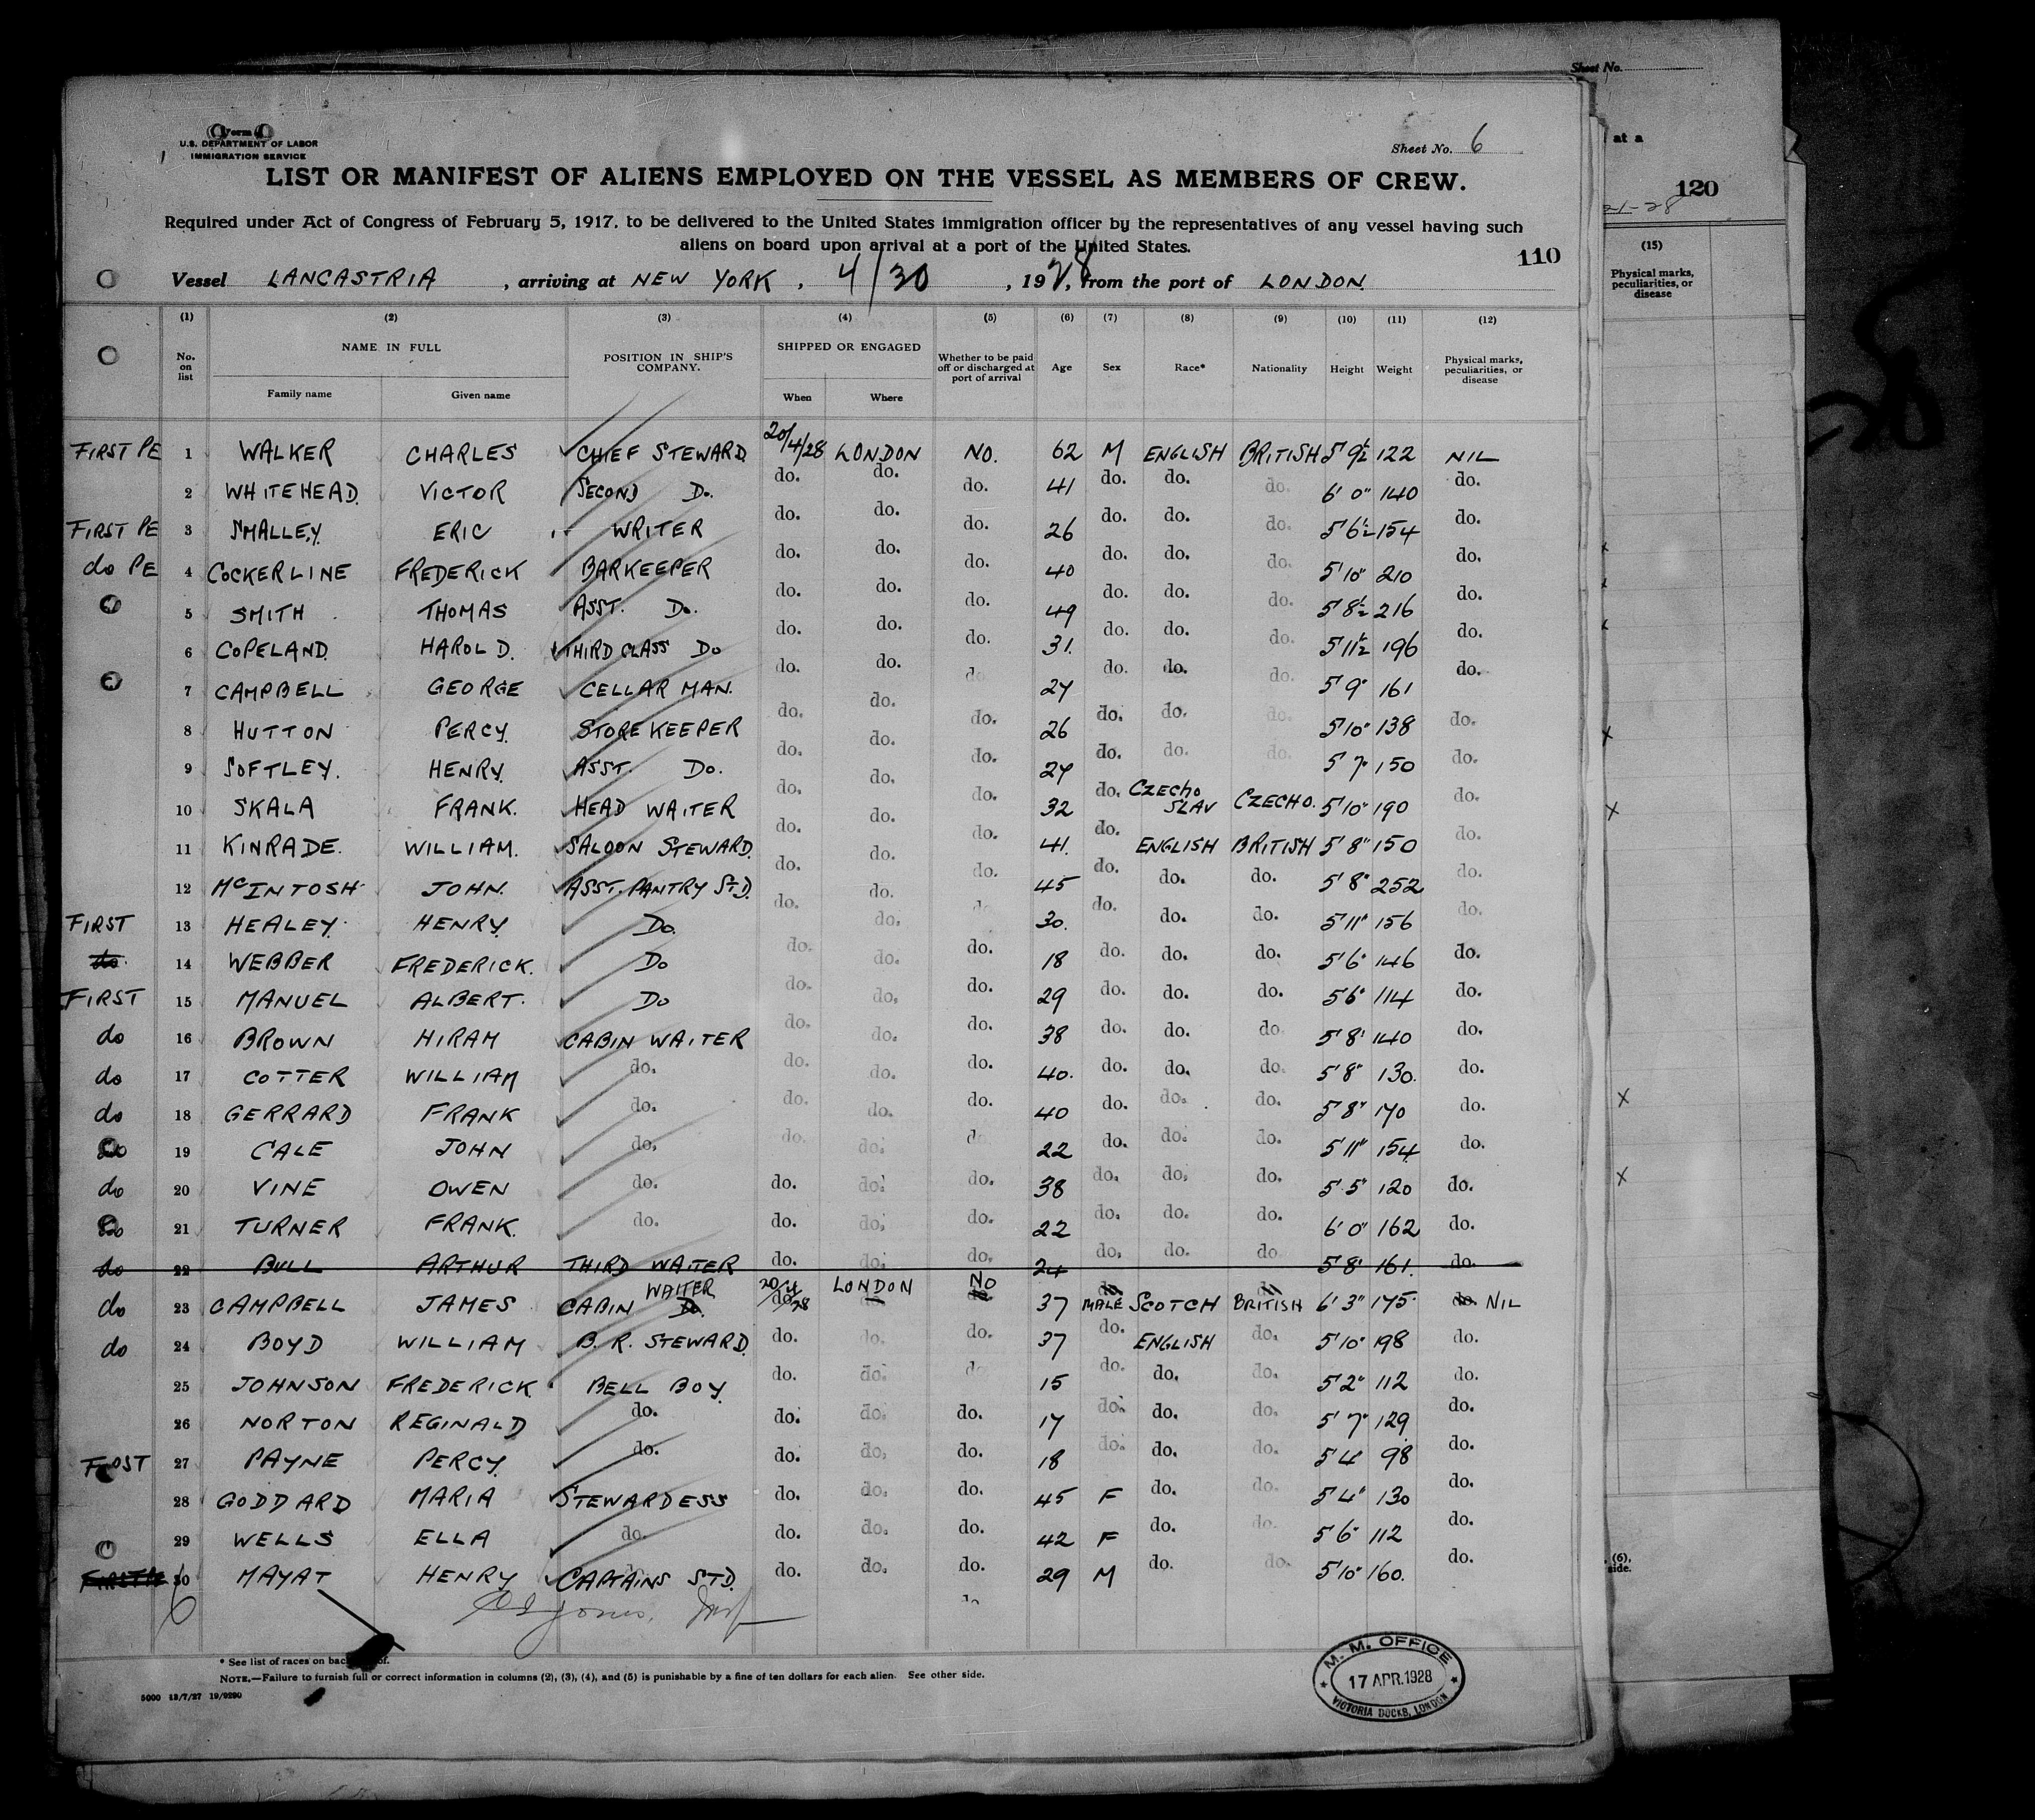 Sheet No.
Form
U.S. DEPARTMENT OF LABOR
IMMIGRATION SERVICE
Sheet No. 6
at a
LIST OR MANIFEST OF ALIENS EMPLOYED ON THE VESSEL AS MEMBERS OF CREW.
120
21-28
Required under Act of Congress of February 5, 1917, to be delivered to the United States immigration officer by the representatives of any vessel having such
aliens on board upon arrival at a port of the United States.
110
Vessel LANCASTRIA , arriving at NEW YORK , 4/30 , 1928, from the port of LONDON
(1) (2) (3) (4) (5) (6) (7) (8) (9) (10) (11) (12)
No. on list NAME IN FULL Family name Given name POSITION IN SHIP'S COMPANY. SHIPPED OR ENGAGED When Where Whether to be paid off or discharged at port of arrival Age Sex Race* Nationality Height Weight Physical marks, peculiarities, or disease
(15)
Physical marks, peculiarities, or disease
FIRST PE 1 WALKER CHARLES CHIEF STEWARD 20/4/28 LONDON NO. 62 M ENGLISH BRITISH 5' 9½ 122 NIL
2 WHITEHEAD VICTOR SECOND Do. do. do. do. 41 do. do. do. 6' 0" 140 do.
FIRST PE 3 SMALLEY ERIC WRITER do. do. do. 26 do. do. do. 5' 6½ 154 do.
do PE 4 COCKERLINE FREDERICK BARKEEPER do. do. do. 40 do. do. do. 5' 10" 210 do.
5 SMITH THOMAS ASST. Do. do. do. do. 49 do. do. do. 5' 8½ 216 do.
6 COPELAND HAROLD. THIRD CLASS Do do. do. do. 31. do. do. do. 5' 11½ 196 do.
7 CAMPBELL GEORGE CELLAR MAN. do. do. do 27 do. do. do. 5' 9" 161 do.
8 HUTTON PERCY. STOREKEEPER do. do. do. 26 do. do. do. 5' 10" 138 do.
9 SOFTLEY. HENRY. ASST. Do. do. do. do. 27 do. do. do. 5' 7" 150 do.
10 SKALA FRANK. HEAD WAITER do. do. do. 32 do. CZECHO SLAV CZECHO. 5' 10" 190 do.
11 KINRADE. WILLIAM. SALOON STEWARD. do. do. do. 41. do. ENGLISH BRITISH 5' 8" 150 do.
12 McINTOSH JOHN. ASST. PANTRY STD. do. do. do. 45 do. do. do. 5' 8" 252 do.
FIRST 13 HEALEY HENRY. Do. do. do. do 30. do. do. do. 5' 11" 156 do.
do. 14 WEBBER FREDERICK. Do do. do. do. 18 do. do. do. 5' 6" 146 do.
FIRST 15 MANUEL ALBERT. Do do. do. do. 29 do. do. do. 5' 6" 114 do.
do 16 BROWN HIRAM CABIN WAITER do. do. do. 38 do. do. do 5' 8" 140 do.
do 17 COTTER WILLIAM do. do. do. do. 40. do. do. do. 5' 8" 130. do.
do 18 GERRARD FRANK do. do. do. do. 40 do. do. do. 5' 8" 170 do.
do 19 CALE JOHN do. do. do. do 22 do. do. do. 5' 11" 154 do.
do 20 VINE OWEN do. do. do. do. 38 do. do. do. 5' 5" 120 do.
do 21 TURNER FRANK. do. do. do. do. 22 do. do. do. 6' 0" 162 do.
do 22 BULL ARTHUR THIRD WAITER do. do. do. 24 do. do. do 5' 8" 161. do.
do 23 CAMPBELL JAMES CABIN WAITER 20/4/28 LONDON NO 37 MALE SCOTCH BRITISH 6' 3" 175 NIL
do 24 BOYD WILLIAM B. R. STEWARD. do. do. do. 37 do. ENGLISH do. 5' 10" 198 do.
25 JOHNSON FREDERICK BELL BOY do. do. do 15 do. do. do. 5' 2" 112 do.
26 NORTON REGINALD do. do. do. do. 17 do. do. do. 5' 7" 129 do.
FIRST 27 PAYNE PERCY. do. do. do. do. 18 do. do. do. 5' 4 98 do.
28 GODDARD MARIA STEWARDESS do. do. do. 45 F do. do. 5' 4" 130 do.
29 WELLS ELLA do. do. do. do. 42 F do. do. 5' 6" 112 do.
FIRST PE 30 MAYAT HENRY CAPTAINS STD. do. do. do. 29 M do. do. 5' 10" 160. do.
6
* See list of races on back
NOTE.—Failure to furnish full or correct information in columns (2), (3), (4), and (5) is punishable by a fine of ten dollars for each alien. See other side.
5000 13/7/27 19/9290
M. M. OFFICE
17 APR. 1928
VICTORIA DOCKS, LONDON
(6).
side.